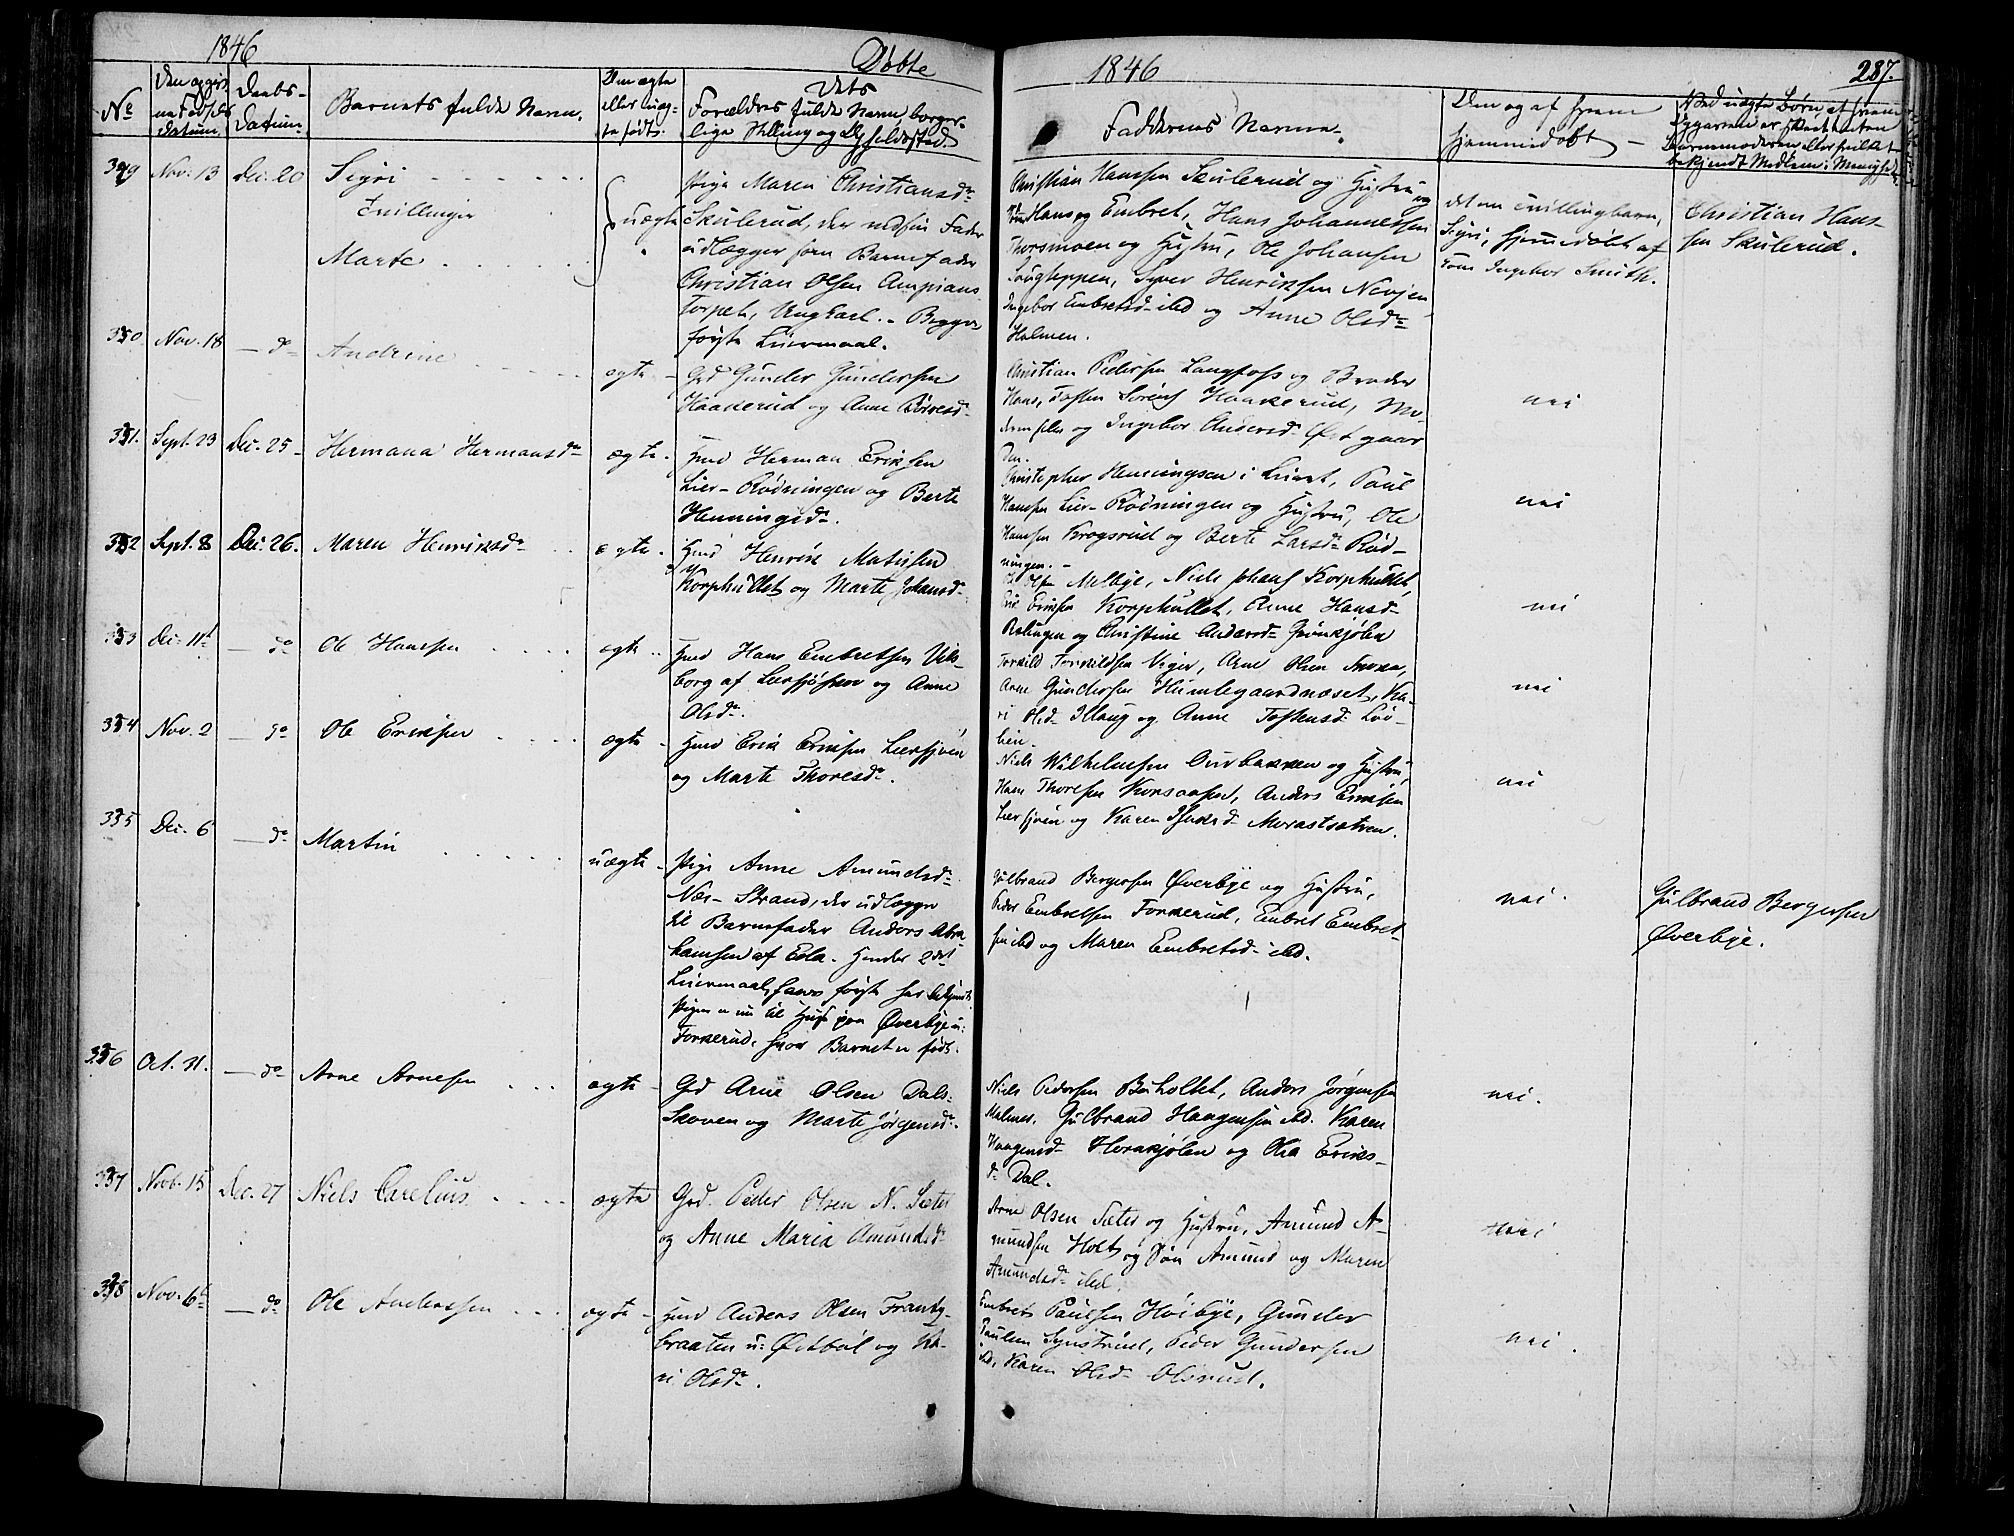 1846
Døbte
1846
287.
No
Den opgiv-
ne Fødsels
Datum.
Daabs-
Datum.
Barnets fulde Navn.
Om ægte
eller uæg-
te født.
Dets
Forældres fulde Navn, borger-
lige Stilling og Opholdssted.
Faddernes Navne.
Om og af hvem
hjemmedøbt
Ved uægte Børn, af hvem
Opgaven er skeet, enten
Barnemoderen eller hvilket
bekjendt Medlem i Menighed.
349 Nov. 13 Dec. 20 Sigri
Tvillinger
Marte
uægte
Pige Maren Christiansd.
Skulerud, der ved sin Fader
udlægger som Barnefader
Christian Olsen Ampians-
torpet, Ungkarl. - Begges
første Leiermaal.
Christian Hansen Skulerud og Hustru og
Hans og Embret, Hans Johannessen
Thorsmoen og Hustru, Ole Johansen
Syver Henriksen Nevjen
Ingebor Embretsd. ibd og Anne Olsd.
Holmen.
det ene Tvillingbarn,
Sigri, hjemmedøbt af
Ingebor Smith.
Christian Han-
sen Skulerud.
350 Nov. 18 — do Andrine
ægte
Grd Gunder Gundersen
Haakerud og Anne
Christian Pedersen Langfoss og Broder
Hans, Tosten Sørens Haakerud,
og Ingebor Andersd. Østgaar
den.
nei
351. Sept. 23 Dec. 25 Hermana Hermansd.
ægte
Hmd Herman Eriksen
Lier-Rødningen og Berte
Henningsd.
Christopher Henningsen i Lunet, Paul
Hansen Lier-Rødningen og Hustru, Ole
Hansen Krogsrud og Berte Larsd. Rød-
ningen.
nei
352 Sept. 8 Dec. 26. Maren Henriksd.
ægte
Hmd Henrik Matisen
Korphullet og Marte Johansd.
Ole Olsen Melbye, Niels Johans. Korphullet,
Erik Eriksen Korphullet, Anne Hansd.
og Christine Andersd. Grønkjølen
nei
353 Dec. 11 — do Ole Hansen
ægte
Hmd Hans Embretsen Vik-
borg af Leersjøskov og Anne
Olsd.
Torkild Torkildsen Viger, Arne Olsen
Arne Gundersen Humlegaardnæset, Ka-
ri Olsd. Illaug og Anne Tostensd. Lov-
hen.
nei
354 Nov. 2 — do Ole Eriksen
ægte
Hmd Erik Eriksen Leersjøen
og Marte Thoresd.
Niels Wilhelmsen Ourbakken og Hustru,
Hans Thoresen Korsaasen, Anders Eriksen
Leersjøen og Karen Morastsætren.
nei
355 Dec. 6 — do Martin
uægte
Pige Anne Amundsd.
Nor-Strand, der udlægger
til Barnefader Anders Abra-
hamsen af Eda. Hendes 2det
Leiermaal, hans første har bekjendt.
Pigen er nu til Huse paa Øverbye u:
Torkerud, hvor Barnet er født.
Gulbrand Bergersen Øverbye og Hustru,
Peder Embretsen Torkerud, Embret Embret-
sen ibd og Maren Embretsd. ibd.
nei.
Gulbrand Bergersen
Øverbye.
356 Oct. 31. — do Arne Arnesen
ægte
Grd Arne Olsen Dals-
skoven og Marte Jørgensd.
Niels Pedersen Bøholtet, Anders Jørgensen
Malmer, Gulbrand Haagensen ibd. Karen
Haagensd. Hornkjølen og Olea Eriks-
d. Dal.
nei.
357 Novb. 15 Dec. 27 Niels Carelius
ægte
Grd. Peder Olsen N. Sæter
og Anne Maria Amundsd.
Arne Olsen Sæter og Hustru, Amund A-
mundsen Holt og Søn Amund og Maren
Amundsd. ibd.
nei
358 Nov. 6 — do Ole Andersen
ægte
Hmd Anders Olsen Frantz-
braaten u: Østbøl og Ka-
ri Olsd.
Embret Paulsen Høibye, Gunder
Paulsen Peder Gundersen
ibd, Karen Olsd. Olsrud.
nei.